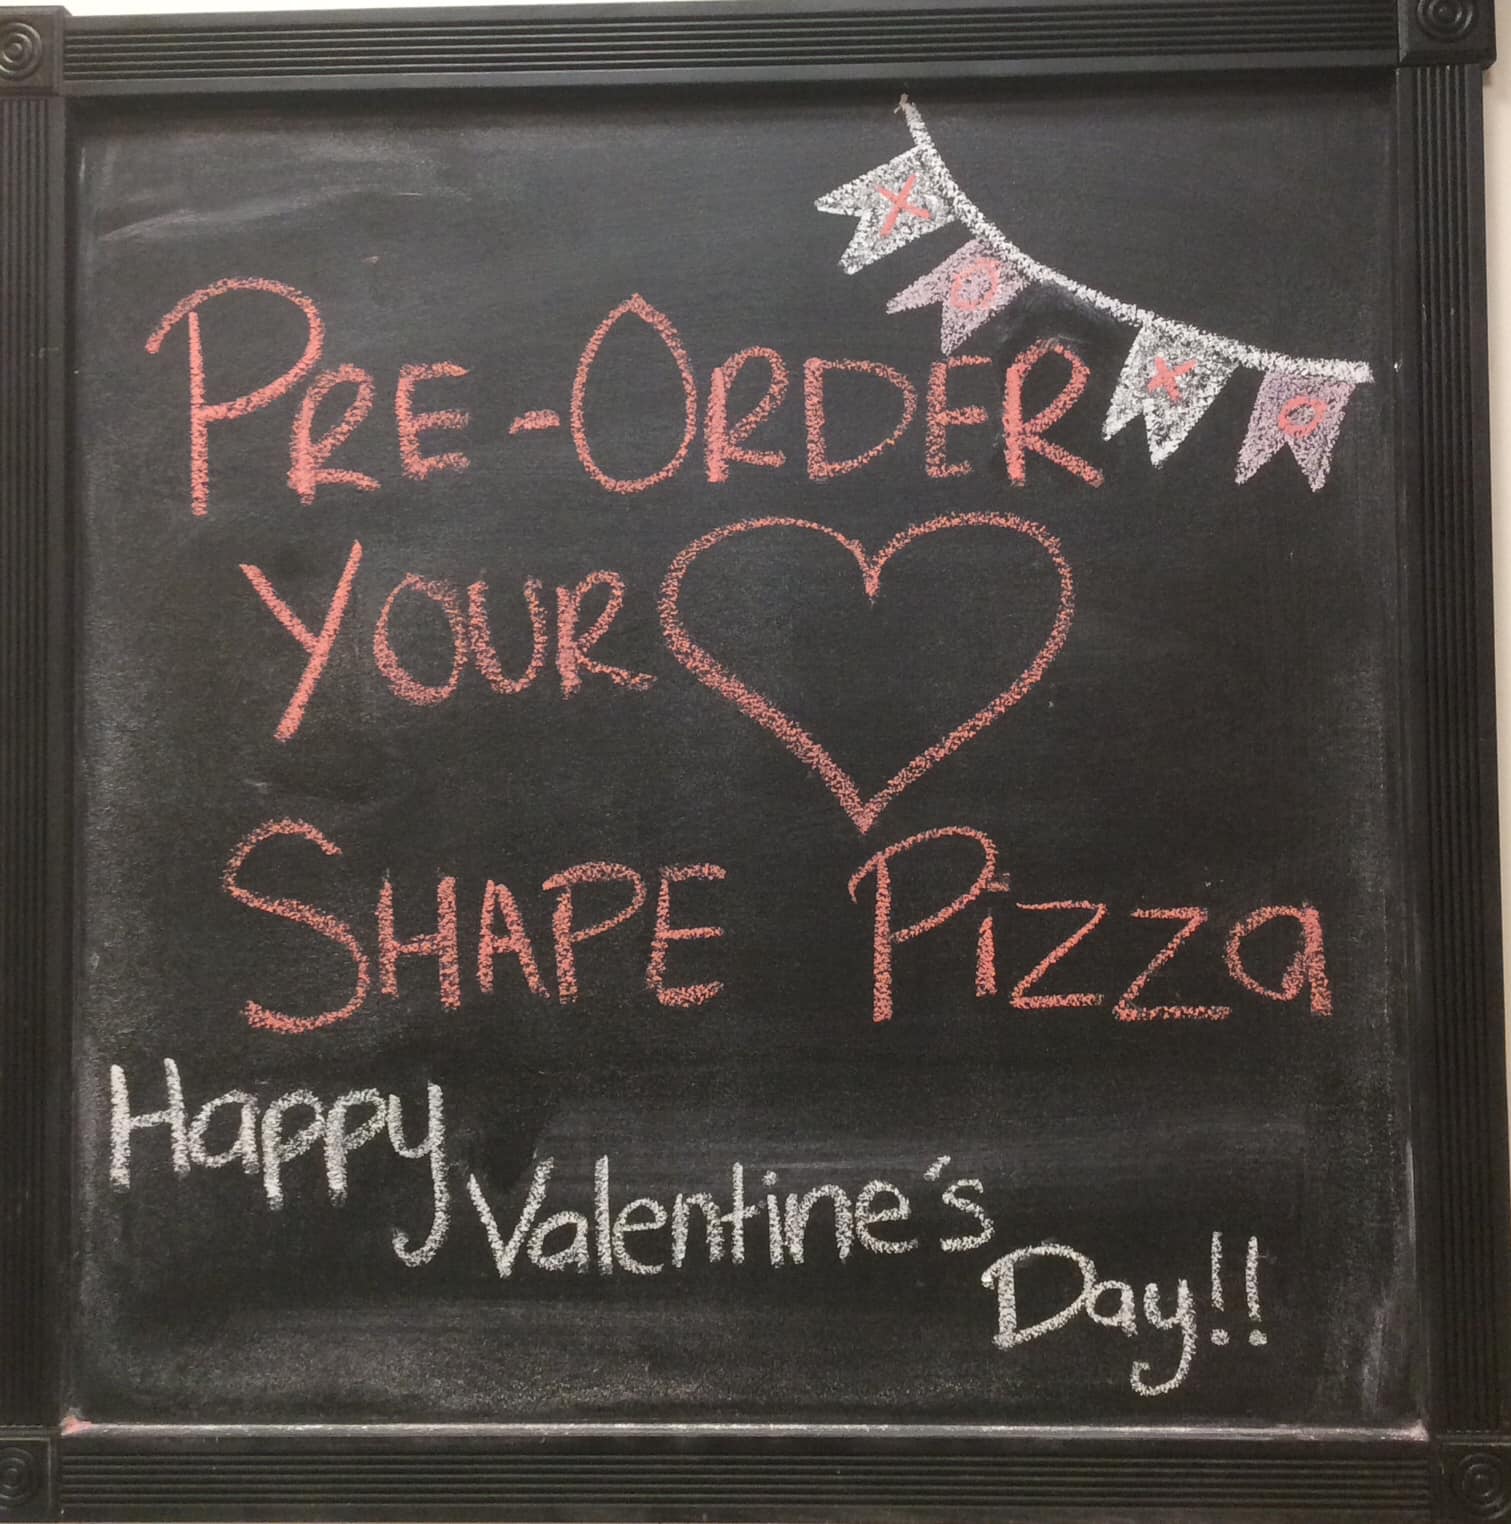 X O X O
PRE-ORDER
YOUR
SHAPE PizzA
Happy
Valentine's
Day!!